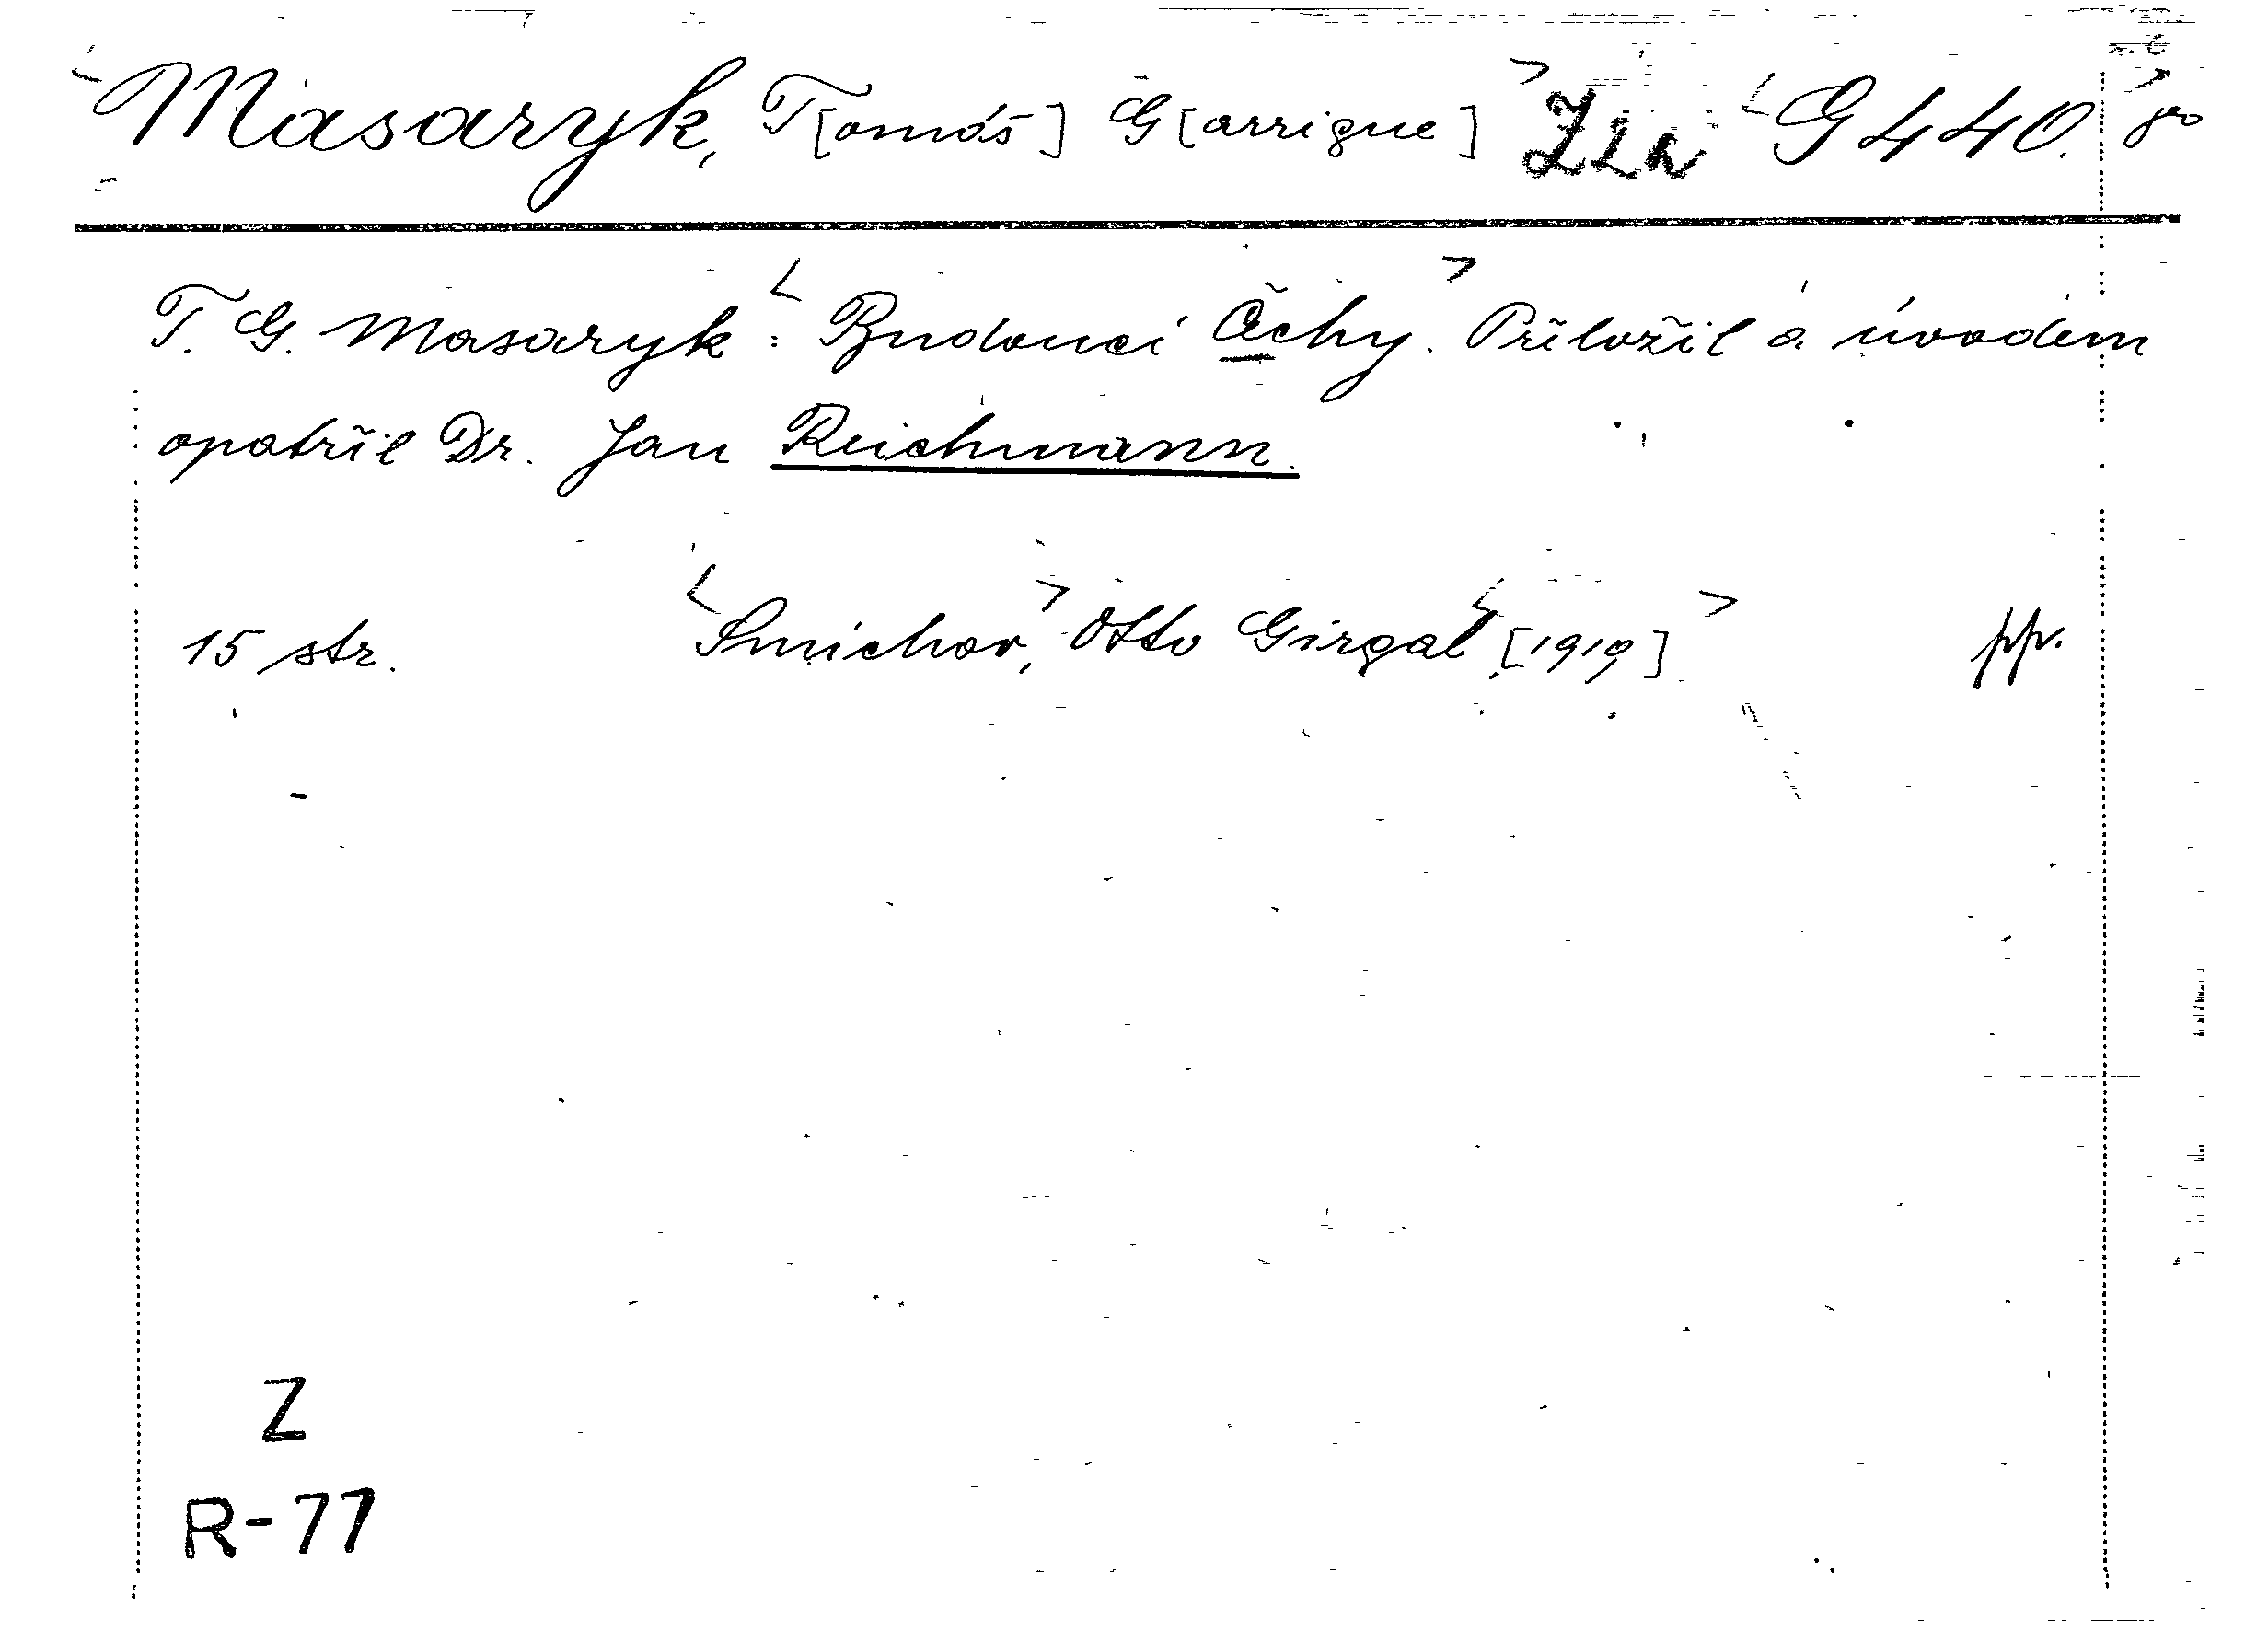 Masaryk, T[omáš] G[arrigue] G 440.
T. G. Masaryk: Budoucí Čechy. Přeložil a úvodem
opatřil Dr. Jan Reichmann.
15 str. Smíchov, Otto Girgal, [1919] pp.
Z
R-77